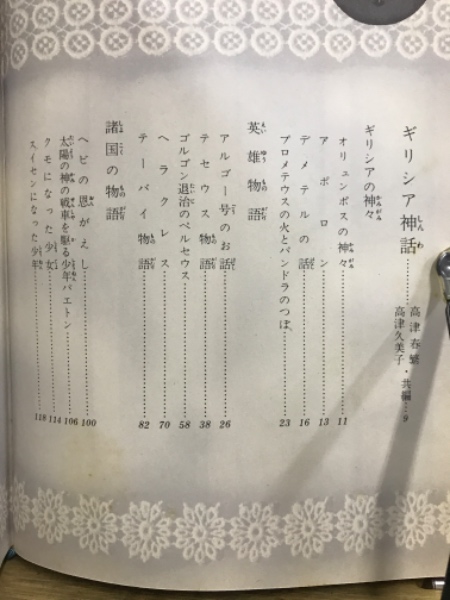 ギリシア神話……高津春繁・高津久美子・共編…9
ギリシアの神々
オリュンポスの神々……11
アポロン……13
デメテルの話……16
プロメテウスの火とパンドラのつぼ……23
英雄物語
アルゴー号のお話……26
テセウス物語……38
ゴルゴン退治のペルセウス……58
ヘラクレス……70
テーバイ物語……82
諸国の物語
ヘビの恩がえし……100
太陽の神の戦車を駆る少年パエトン……106
クモになった少女……114
スイセンになった少年……118